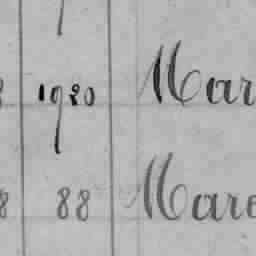 1920 Mar
88 Mare